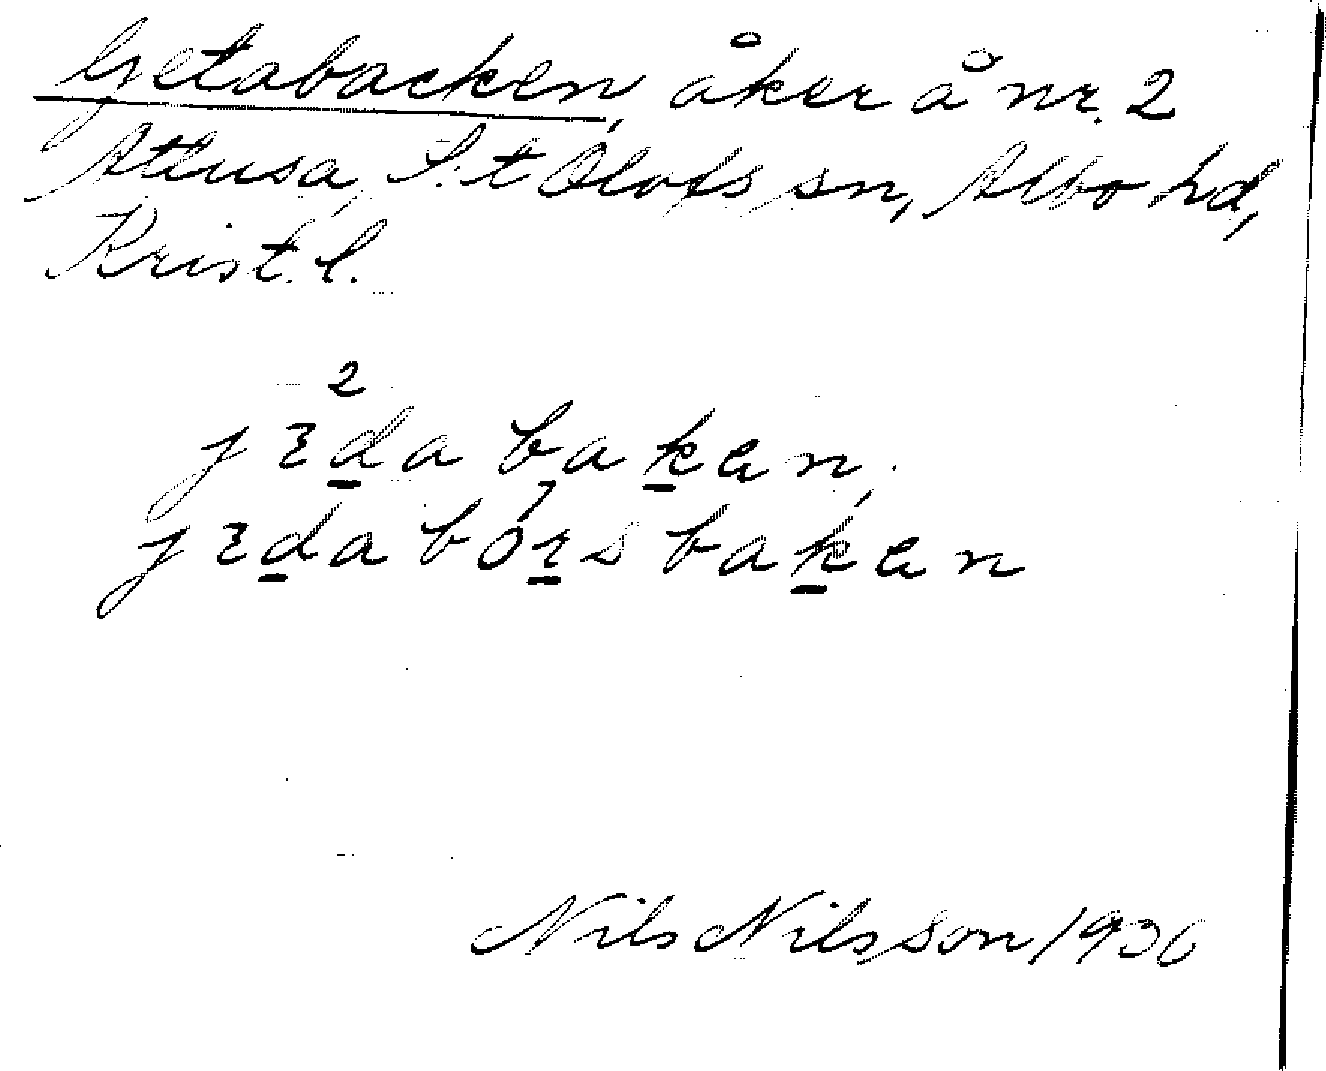 Getabacken, åker å nr. 2
Attusa, S:t Olofs sn, Albo hd,
Krist. l.
2
jɛda bakan,
jɛdabórsbakan
Nils Nilsson 1930